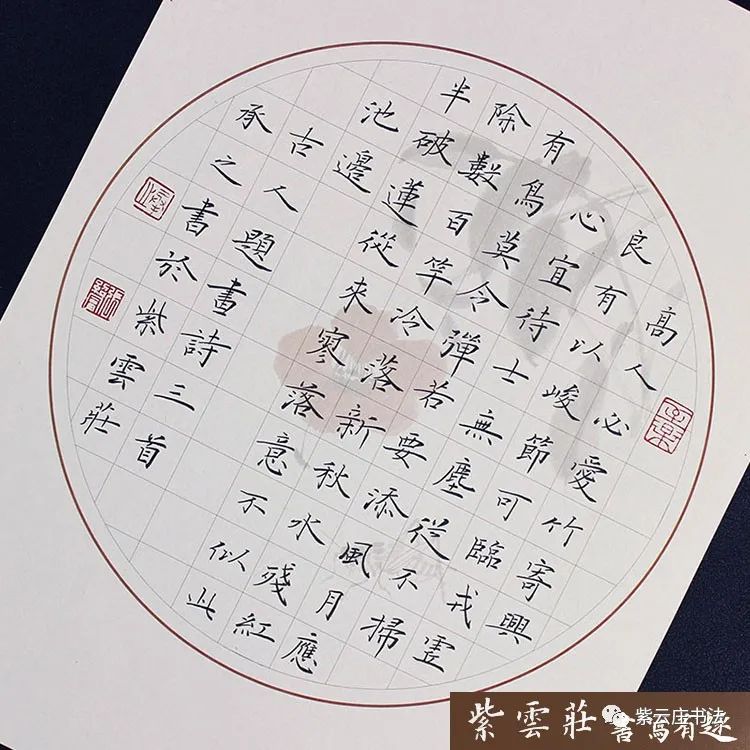 高人必愛竹寄興
良有以峻節可臨戎虛
心宜待士無塵從不掃
有鳥莫令彈若要添風月應
除數百竿冷落新秋水殘紅
半破蓮從來寥落意不似此
池邊
古人題畫詩三首
承之書於紫雲莊
紫雲莊
紫云庄书法